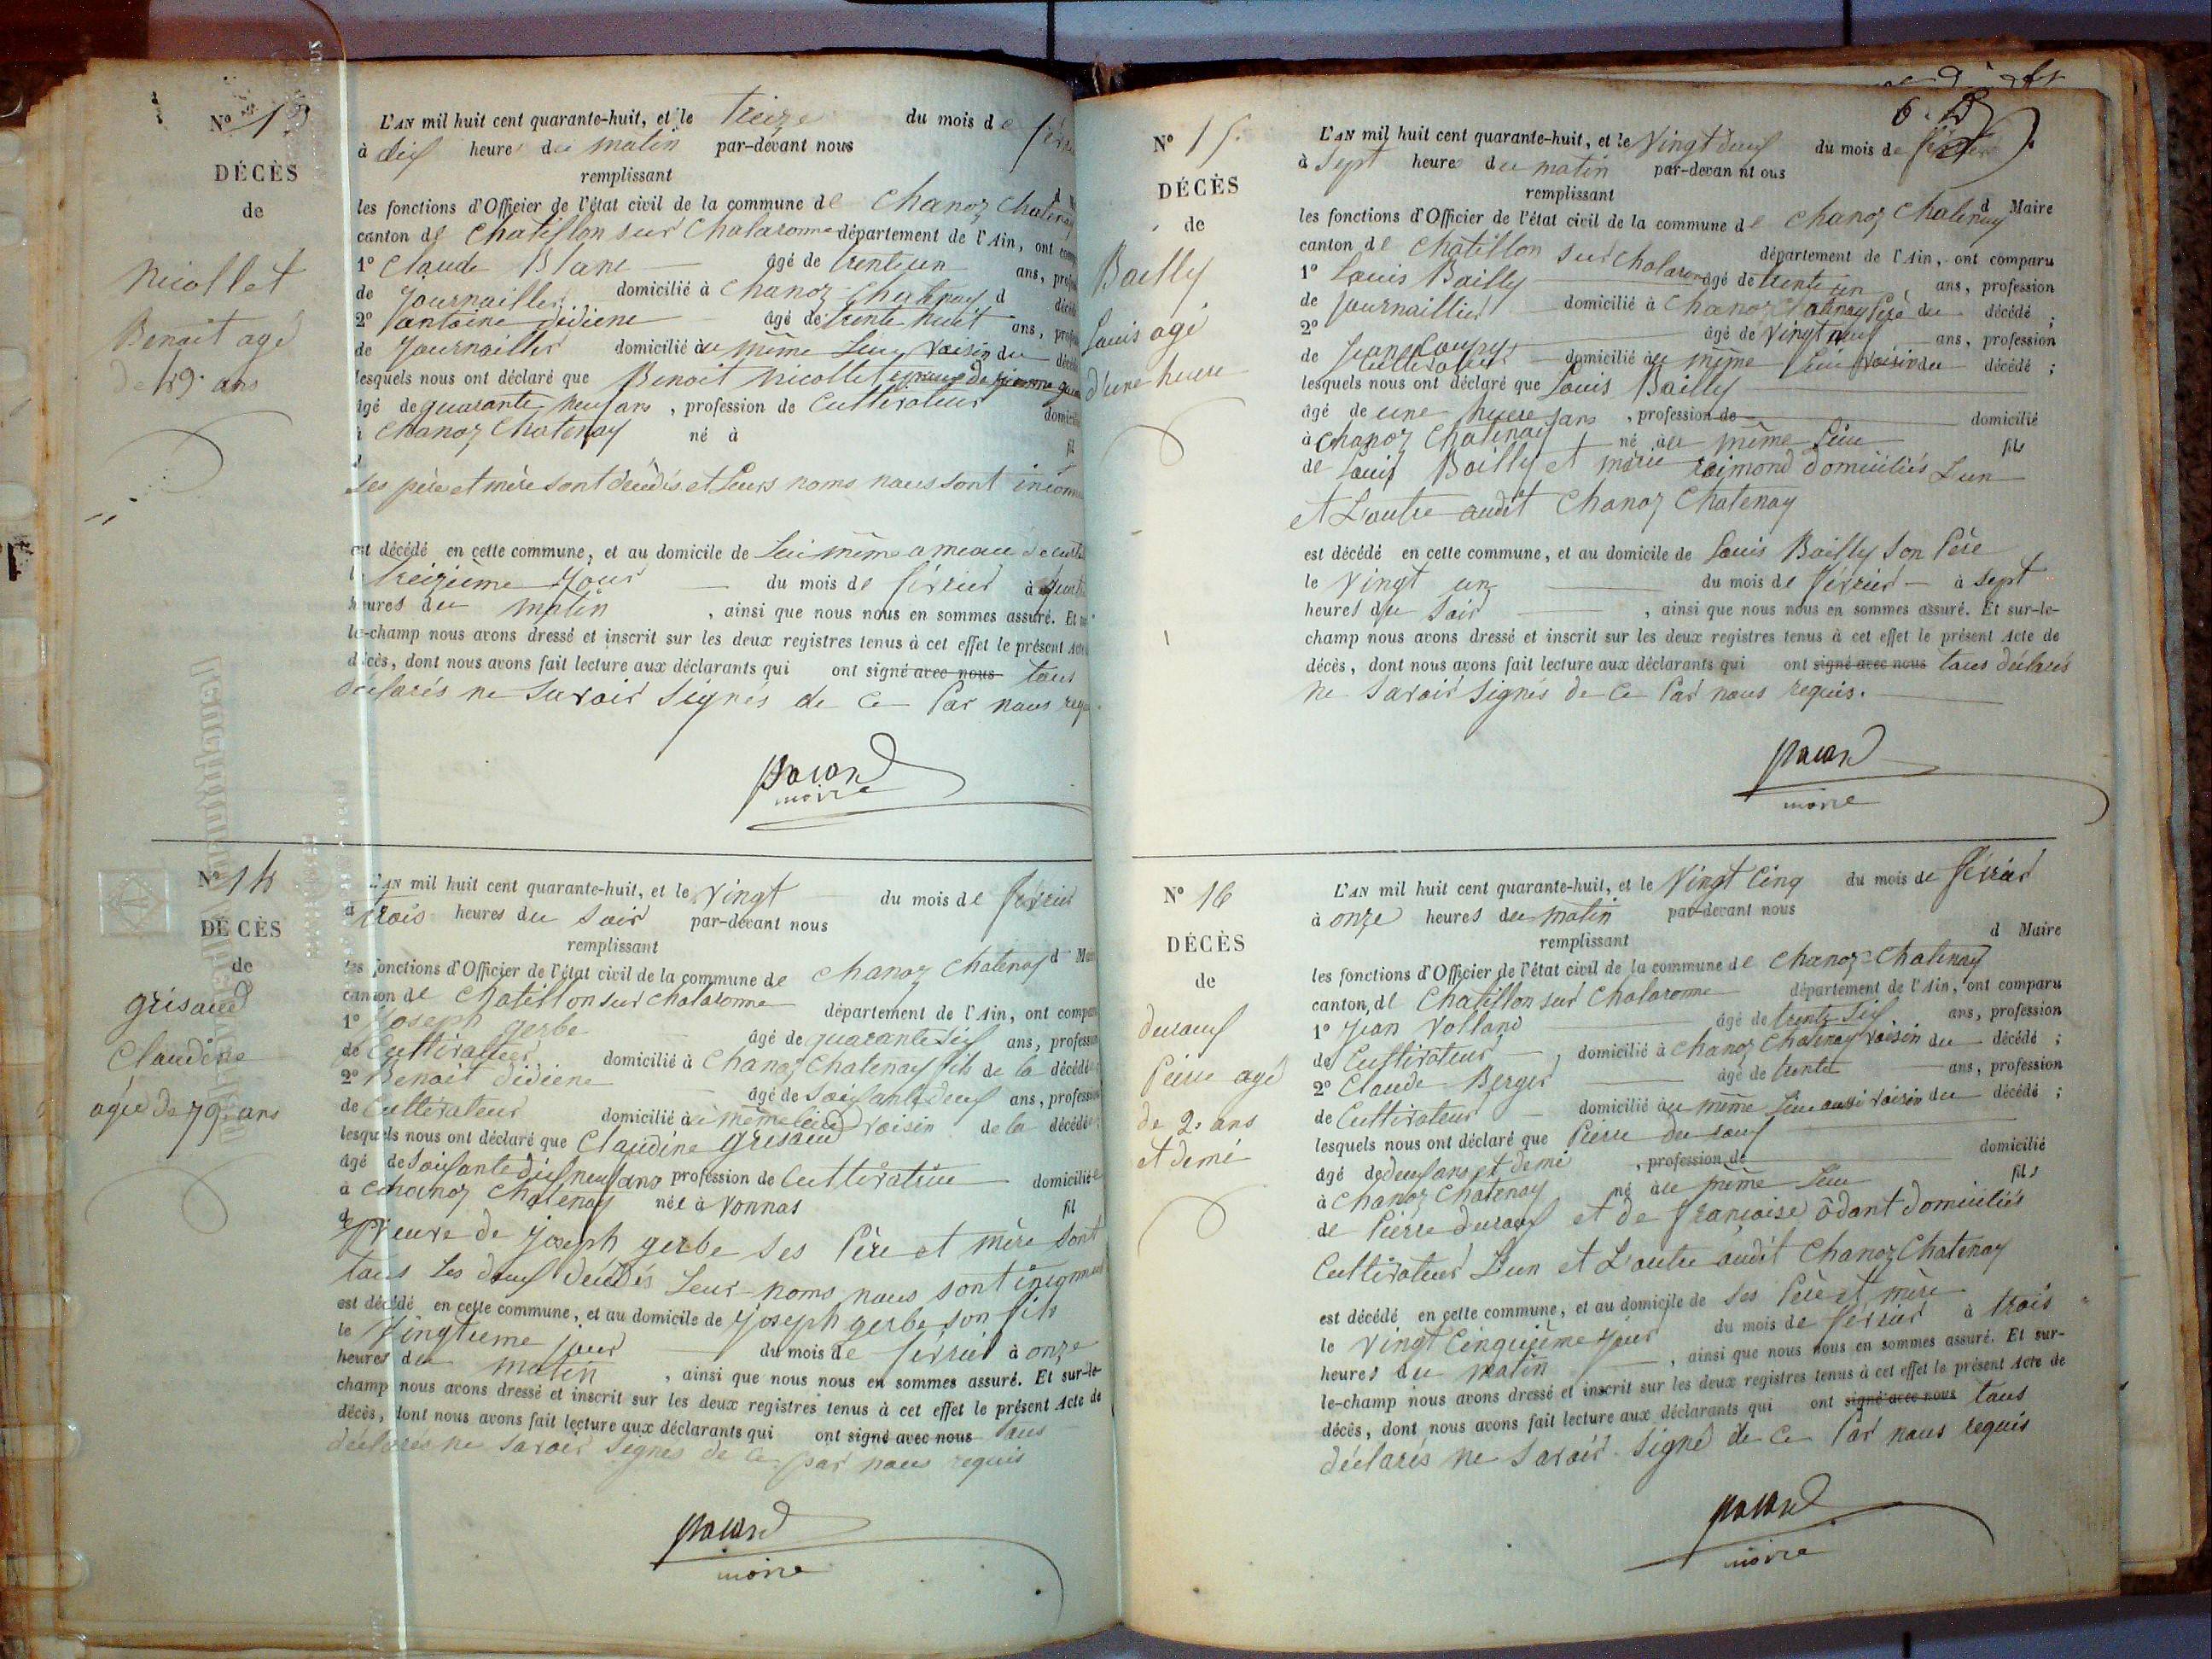 N° 13
DÉCÈS
de
Nicollet
Benoit agé
de 49 ans
L'AN mil huit cent quarante-huit, et le treize du mois de
à dix heures du matin par-devant nous
remplissant
les fonctions d'Officier de l'état civil de la commune de Chanoz Chatenay
canton de Chatillon sur Chalaronne département de l'Ain, ont
1° Claude Blanc âgé de trente un ans,
de Journaillier domicilié à Chanoz Chatenay d
2° antoine didiene âgé de trente huit ans,
de Journaillier domicilié au même Lieu Voisin du
lesquels nous ont déclaré que Benoit Nicollet
âgé de quarante neuf ans, profession de Cultivateur
à Chanoz Chatenay né à
Ses père et mère sont décédés et Leurs noms nous sont
est décédé en cette commune, et au domicile de Lui même
treizième Jour du mois de février à
heures du matin, ainsi que nous nous en sommes assuré. Et
le-champ nous avons dressé et inscrit sur les deux registres tenus à cet effet le présent Acte
décès, dont nous avons fait lecture aux déclarants qui ont signé avec nous tous
déclarés ne Savoir Signés de Ce Par nous
maire
N° 14
DÉCÈS
de
grisaud
Claudine
agée de 79 ans
L'AN mil huit cent quarante-huit, et le Vingt du mois de février
à trois heures du Soir par-devant nous
remplissant
les fonctions d'Officier de l'état civil de la commune de Chanoz Chatenay d
canton de Chatillon sur Chalaronne département de l'Ain, ont
1° Joseph gerbe âgé de quarante Six ans, profession
de Cultivateur domicilié à Chanoz Chatenay fils de la décédée
2° Benoit didiene âgé de Soixante deux ans, profession
de Cultivateur domicilié au même Lieu Voisin de la décédée
lesquels nous ont déclaré que Claudine grisaud
âgé de Soixante dix neuf ans profession de Cultivatrice domiciliée
à Chanoz Chatenay née à Vonnas fil
de Veuve de Joseph gerbe Ses Père et mère sont
tous Les deux décédés Leur noms nous sont
est décédé en cette commune, et au domicile de Joseph gerbe Son fils
le Vingtieme jour du mois de février à onze
heures du matin, ainsi que nous nous en sommes assuré. Et sur-le-
champ nous avons dressé et inscrit sur les deux registres tenus à cet effet le présent Acte de
décès, dont nous avons fait lecture aux déclarants qui ont signé avec nous tous
déclarés ne Savoir Signés de Ce par nous requis
maire
N° 15
DÉCÈS
de
Bailly
Louis agé
d'une heure
L'AN mil huit cent quarante-huit, et le Vingt deux du mois de février
à Sept heures du matin par-devan nt ous
remplissant
d Maire
les fonctions d'Officier de l'état civil de la commune de Chanoz Chatenay
canton de Chatillon sur Chalaronne département de l'Ain, ont comparu
1° Louis Bailly âgé de trente un, ans, profession
de Journaillier domicilié à Chanoz Chatenay Père du décédé ;
2° âgé de Vingt neuf ans, profession
de Cultivateur domicilié au même Lieu Voisin du décédé ;
lesquels nous ont déclaré que Louis Bailly
âgé de une heure ans, profession de domicilié
à Chanoz Chatenay né au même Lieu fils
de Louis Bailly et marie raimond domiciliés L'un
et L'autre audit Chanoz Chatenay
est décédé en cette commune, et au domicile de Louis Bailly Son Père
le Vingt un du mois de février à Sept
heures du Soir, ainsi que nous nous en sommes assuré. Et sur-le-
champ nous avons dressé et inscrit sur les deux registres tenus à cet effet le présent Acte de
décès, dont nous avons fait lecture aux déclarants qui ont signé avec nous tous déclarés
ne Savoir Signés de Ce Par nous requis.
maire
N° 16
DÉCÈS
de
duraux
Pierre agé
de 2 ans
et demi
L'AN mil huit cent quarante-huit, et le Vingt Cinq du mois de février
à onze heures du matin par-devant nous
remplissant
d Maire
les fonctions d'Officier de l'état civil de la commune de Chanoz-Chatenay
canton de Chatillon sur Chalaronne département de l'Ain, ont comparu
1° Jean Volland âgé de trente Six. ans, profession
de Cultivateur, domicilié à Chanoz Chatenay Voisin du décédé ;
2° Claude Berger âgé de trente ans, profession
de Cultivateur domicilié au même Lieu aussi Voisin du décédé ;
lesquels nous ont déclaré que Pierre
âgé de deux ans et demi, profession de domicilié
à Chanoz Chatenay né au même Lieu fils
de Pierre duraux et de françoise odant domiciliés
Cultivateurs L'un et L'autre audit Chanoz Chatenay
est décédé en cette commune, et au domicile de Ses Père et mère
le Vingt Cinquième jour du mois de février à trois
heures du matin, ainsi que nous nous en sommes assuré. Et sur-
le-champ nous avons dressé et inscrit sur les deux registres tenus à cet effet le présent Acte de
décès, dont nous avons fait lecture aux déclarants qui ont signé avec nous tous
déclarés ne Savoir Signé de Ce Par nous requis
maire